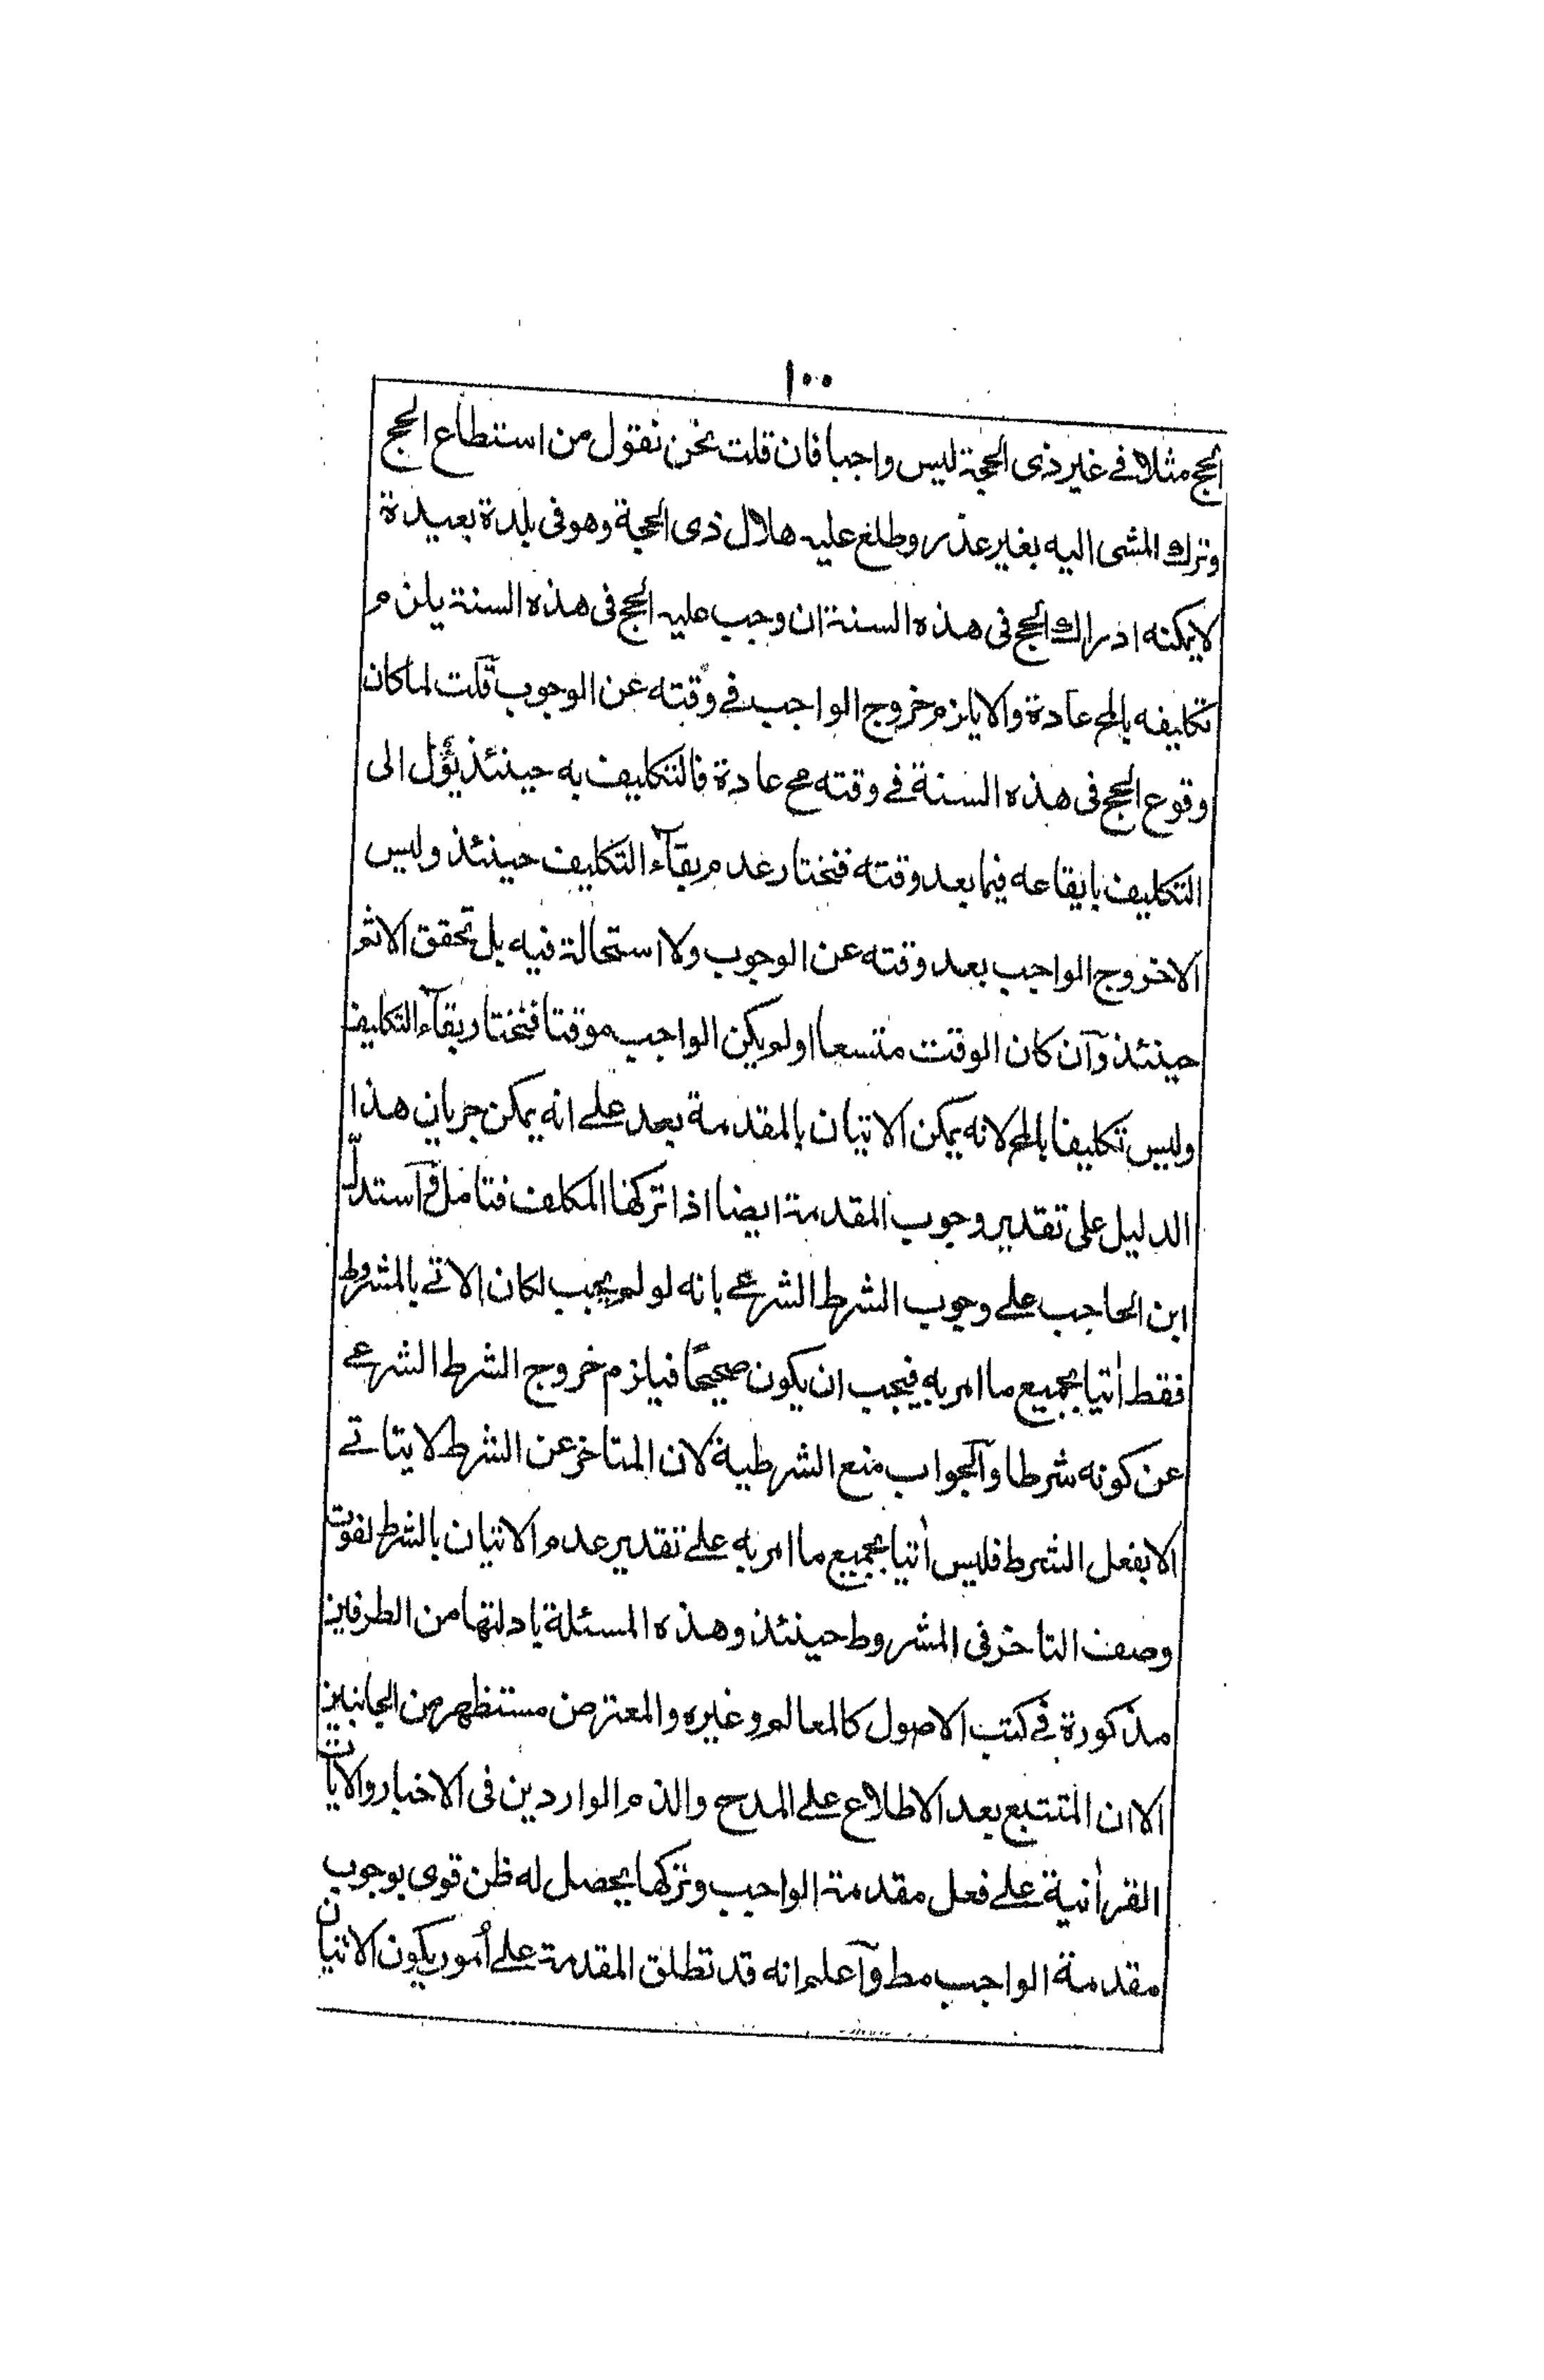 ١٠٠
الحج مثلا فے غير ذى الحجة ليس واجبا فان قلت نحن نقول من استطاع الحج
وترك المشى اليه بغير عذر وطلع عليه هلال ذى الحجة وهو فى بلدة بعيدة
لا يمكنه ادراك الحج فى هذه السنة ان وجب عليه الحج فى هذه السنة يلزم
تكليفه بالمح عادة والا يلزم خروج الواجب فے وقته عن الوجوب قلت لما كان
وقوع الحج فى هذه السنة فے وقته مح عادة فالتكليف به حينئذ يؤل الى
التكليف بايقاعه فيما بعد وقته فنختار عدم بقآء التكليف حينئذ وليس
الا خروج الواجب بعد وقته عن الوجوب ولا استحالة فيه بل تحقق الاثم
حينئذ وآن كان الوقت متسعا او لم يكن الواجب موقتا فنختار بقآء التكليف
وليس تكليفا بالمح لانه يمكن الاتيان بالمقدمة بعد علے انه يمكن جريان هذا
الدليل على تقدير وجوب المقدمة ايضا اذا تركها المكلف فتامل وآستدلّ
ابن الحاجب علے وجوب الشرط الشرعے بانه لو لم يجب لكان الاتے بالمشروط
فقط اٰتيا بجميع ما امر به فيجب ان يكون صحيحًا فيلزم خروج الشرط الشرعے
عن كونه شرطا وآلجواب منع الشرطية لان المتاخر عن الشرط لا يتاتے
الا بفعل الشرط فليس اٰتيا بجميع ما امر به علے تقدير عدم الاتيان بالشرط لفوت
وصف التاخر فى المشروط حينئذ وهذه المسئلة بادلتها من الطرفين
مذكورة فے كتب الاصول كالمعالم وغيره والمعترض مستظهر من الجانبين
الا ان المتتبع بعد الاطلاع علے المدح والذم الواردين فى الاخبار والايات
القراٰنية علے فعل مقدمة الواجب وتركها يحصل له ظن قوى بوجوب
مقدمة الواجب مط وآعلم انه قد تطلق المقدمة علے اُمور يكون الاتيان